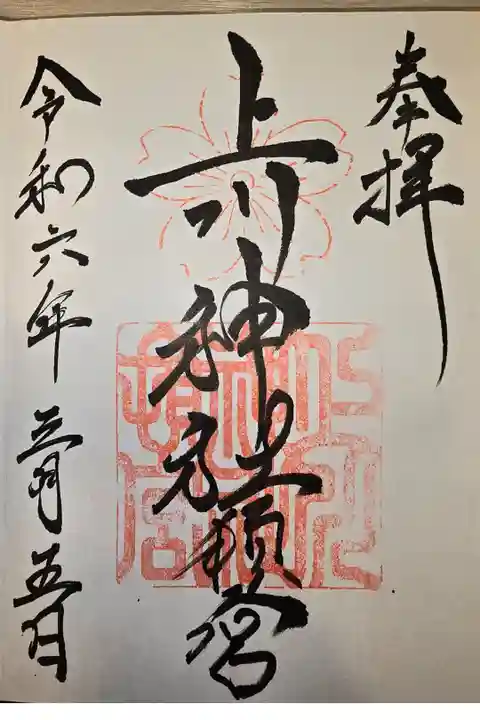 奉拝
上川神社頓宮
令和六年三月五日